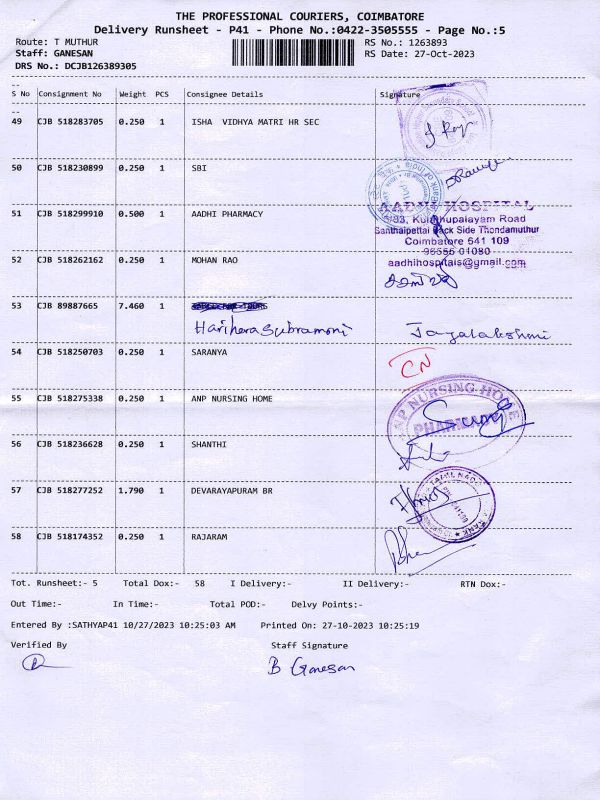 THE PROFESSIONAL COURIERS, COIMBATORE
Delivery Runsheet - P41 - Phone No.:0422-3505555 - Page No.:5
Route: T MUTHUR RS No.: 1263893
Staff: GANESAN RS Date: 27-Oct-2023
DRS No.: DCJB126389305
S No Consignment No Weight PCS Consignee Details Signature
49 CJB 518283705 0.250 1 ISHA VIDHYA MATRI HR SEC
50 CJB 518230899 0.250 1 SBI
51 CJB 518299910 0.500 1 AADHI PHARMACY
AADHI HOSPITAL
Santhaipettai Back Side Thondamuthur
Coimbatore 641 109
52 CJB 518262162 0.250 1 MOHAN RAO
96556 01080
aadhihospitals@gmail.com
53 CJB 89887665 7.460 1
Harihera Subramoni Jayalakshmi
54 CJB 518250703 0.250 1 SARANYA
CN
55 CJB 518275338 0.250 1 ANP NURSING HOME
ANP NURSING HOME
PHARMACY
56 CJB 518236628 0.250 1 SHANTHI
57 CJB 518277252 1.790 1 DEVARAYAPURAM BR
58 CJB 518174352 0.250 1 RAJARAM
Tot. Runsheet:- 5 Total Dox:- 58 I Delivery:- II Delivery:- RTN Dox:-
Out Time:- In Time:- Total POD:- Delvy Points:-
Entered By :SATHYAP41 10/27/2023 10:25:03 AM Printed On: 27-10-2023 10:25:19
Verified By Staff Signature
B Ganesan